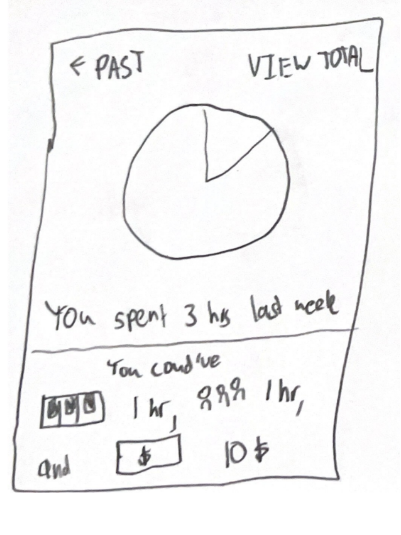 ← PAST VIEW TOTAL
You spent 3 hrs last week
You coud've
1 hr, 1 hr,
and $ 10$